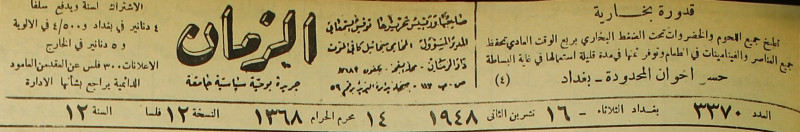 قدورة بخارية
تطبخ جميع اللحوم والخضروات تحت الضغط البخاري بربع الوقت العادي تحتفظ
جميع العناصر والفيتامينات في الطعام وتوفر ثمنها في مدة قليلة استعمالها في غاية البساطة
حسو اخوان المحدودة - بغداد (٤)
صاحبها ورئيس تحريرها توفيق السمعاني
المدير المسؤول المحامي
الزمان
جريدة يومية سياسية جامعة
الاشتراك لسنة ويدفع سلفا
٤ دنانير في بغداد و ٤/٥٠٠ في الالوية
و ٥ دنانير في الخارج
الاعلانات ٣٠٠ فلس عن العقد من العامود
الدائمية يراجع بشأنها الادارة
العدد ٣٣٧٠ بغداد الثلاثاء - ١٦ تشرين الثاني ١٩٤٨ ١٤ محرم الحرام ١٣٦٨ النسخة ١٢ فلسا السنة ١٢